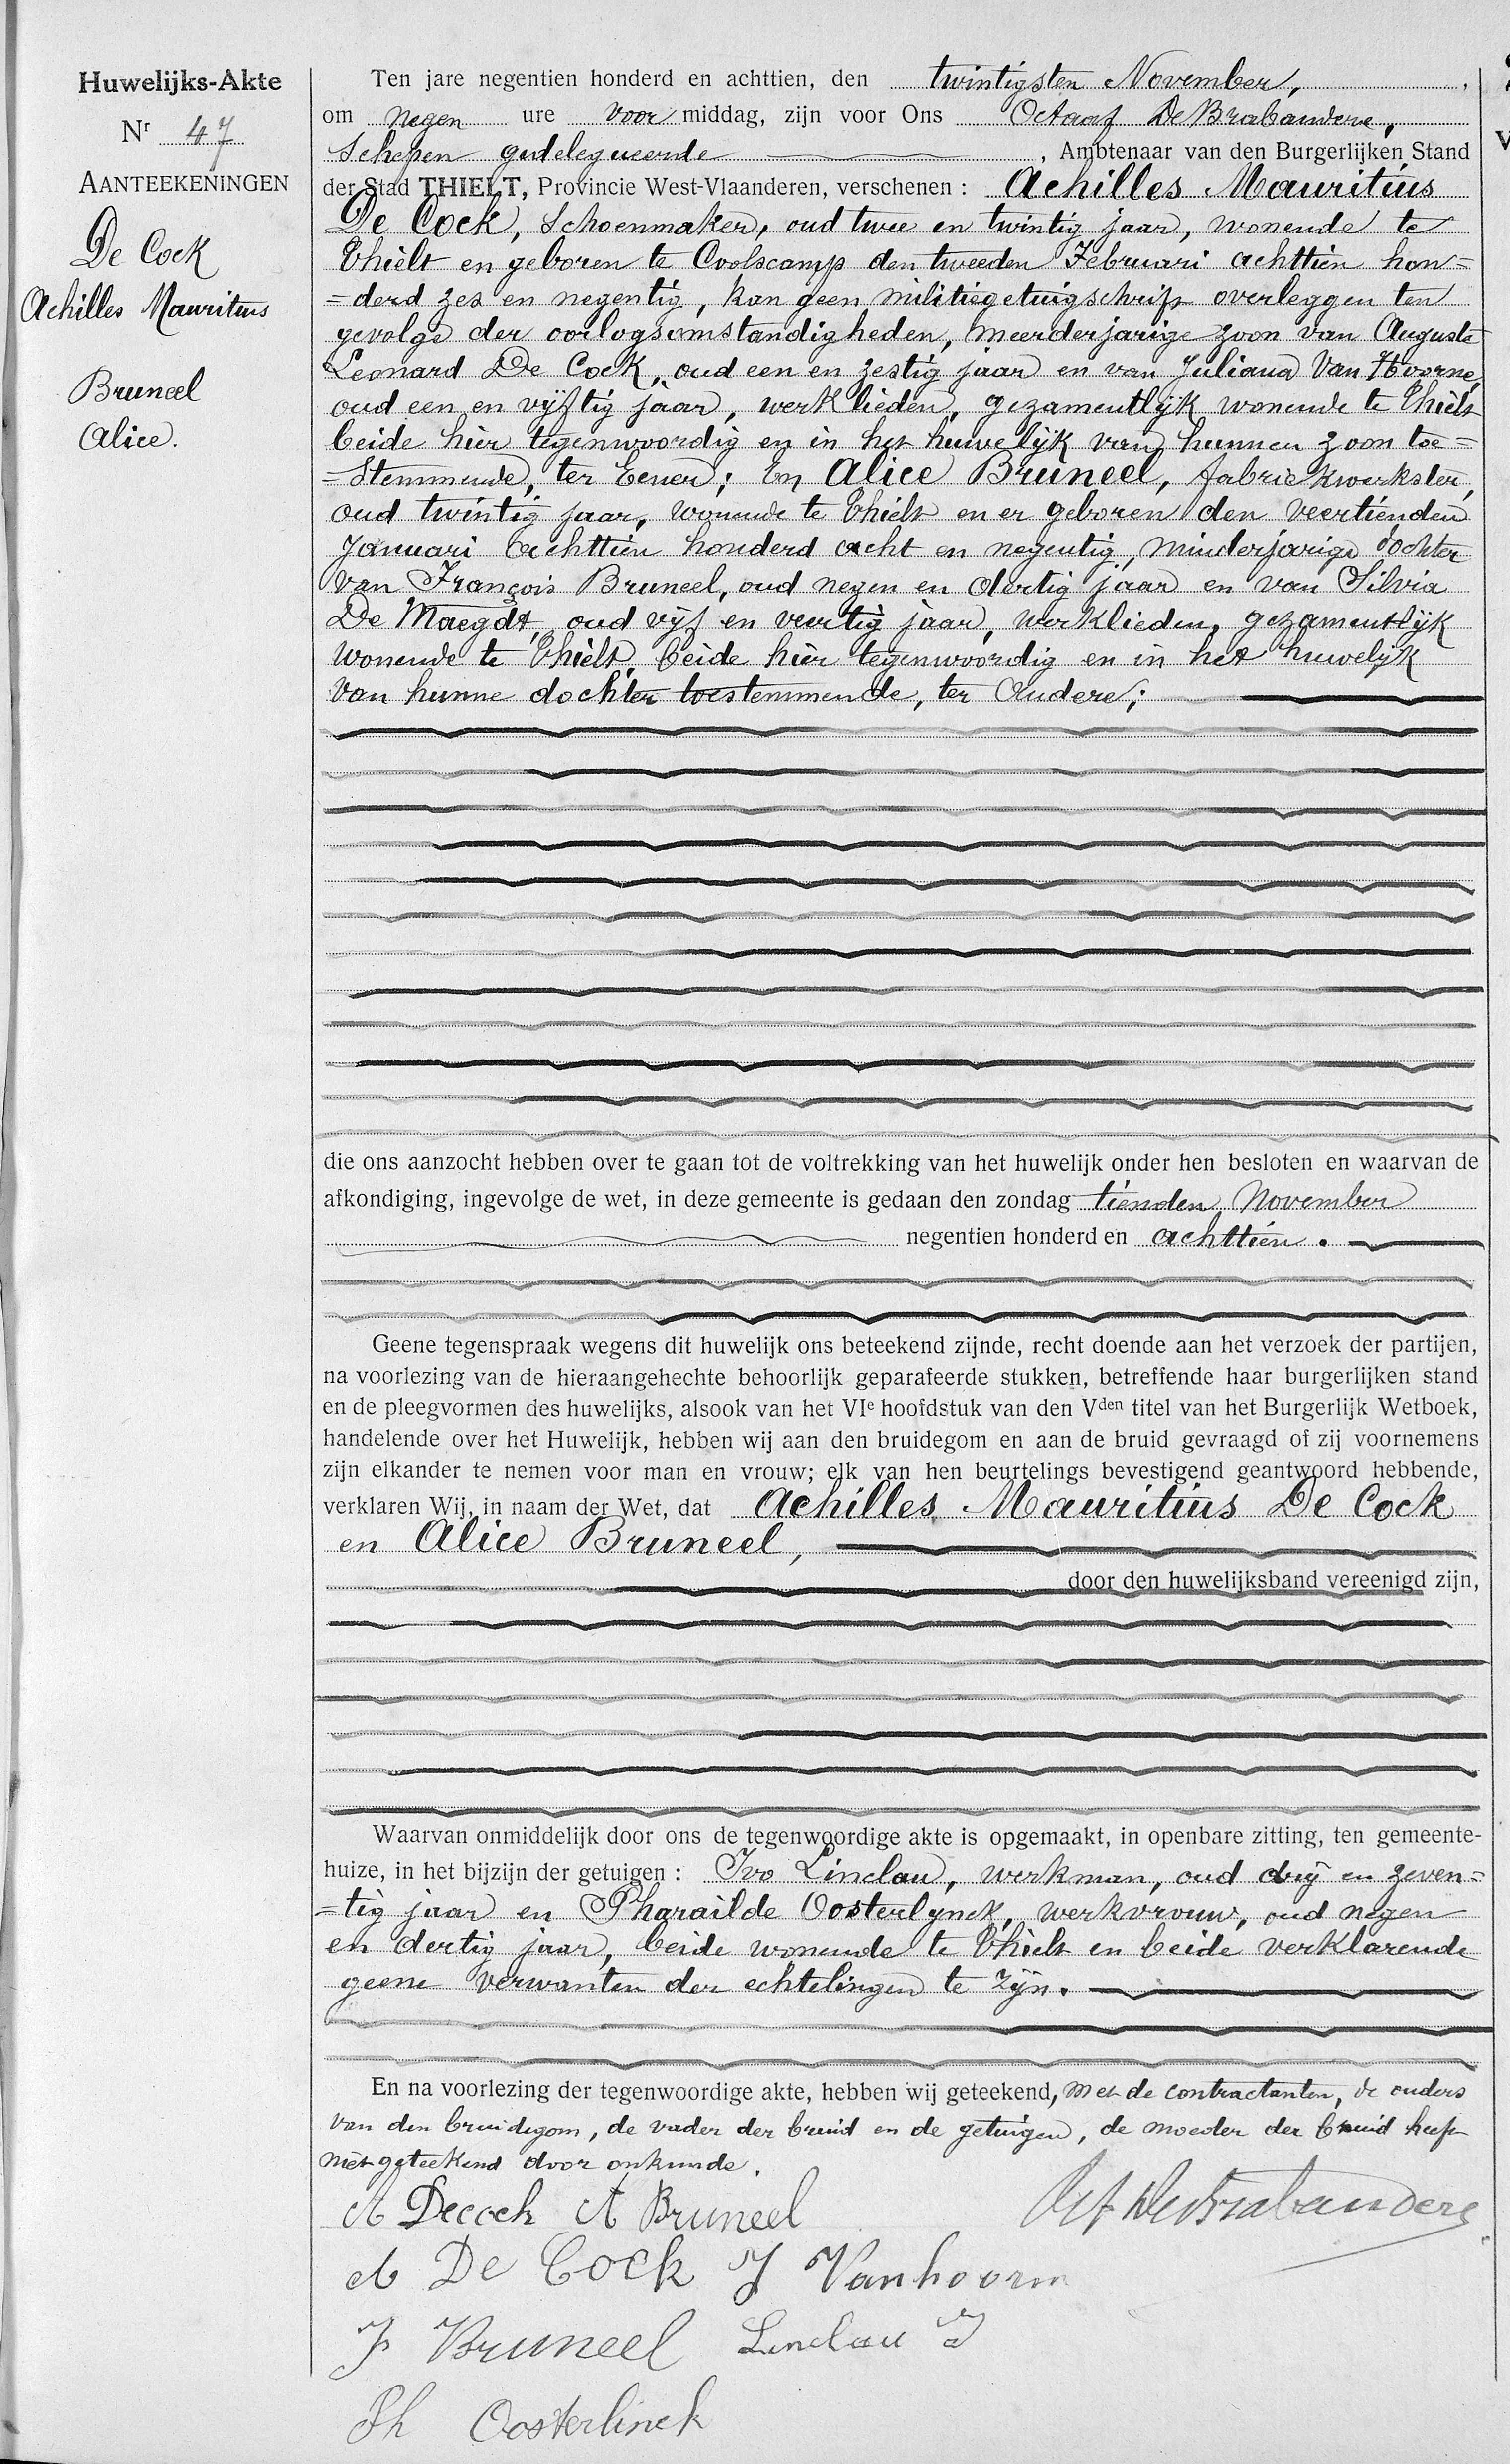 Huwelijks-Akte
Nr 47
AANTEEKENINGEN
De Cock
Achilles Mauritius
Bruneel
Alice.
Ten jare negentien honderd en achttien, den twintigsten November,
om negen ure voor middag, zijn voor Ons Octaaf De Brabandere,
Schepen gedelegueerde, Ambtenaar van den Burgerlijken Stand
der Stad THIELT, Provincie West-Vlaanderen, verschenen : Achilles Mauritius
De Cock, Schoenmaker, oud twee en twintig jaar, wonende te
Thielt en geboren te Coolscamp den tweeden Februari achttien hon=
=derd zes en negentig, kan geen militiegetuigschrift overleggen ten
gevolge der oorlogsomstandigheden, meerderjarige zoon van Auguste
Leonard De Cock, oud een en zestig jaar en van Juliana Van Hoorne,
oud een en vijftig jaar, werklieden, gezamentlijk wonende te Thielt
beide hier tegenwoordig en in het huwelijk van hunnen zoon toe=
=stemmende, ter Eener; En Alice Bruneel, fabriekwerkster,
oud twintig jaar, wonende te Thielt en er geboren den veertienden
Januari achttien honderd acht en negentig, minderjarige dochter
van François Bruneel, oud negen en dertig jaar en van Silvia
De Maegdt, oud vijf en veertig jaar, werklieden, gezamentlijk
wonende te Thielt, beide hier tegenwoordig en in het huwelijk
van hunne dochter toestemmende, ter Andere;
die ons aanzocht hebben over te gaan tot de voltrekking van het huwelijk onder hen besloten en waarvan de
afkondiging, ingevolge de wet, in deze gemeente is gedaan den zondag tienden November
negentien honderd en achttien.
Geene tegenspraak wegens dit huwelijk ons beteekend zijnde, recht doende aan het verzoek der partijen,
na voorlezing van de hieraangehechte behoorlijk geparafeerde stukken, betreffende haar burgerlijken stand
en de pleegvormen des huwelijks, alsook van het VIe hoofdstuk van den Vden titel van het Burgerlijk Wetboek,
handelende over het Huwelijk, hebben wij aan den bruidegom en aan de bruid gevraagd of zij voornemens
zijn elkander te nemen voor man en vrouw; elk van hen beurtelings bevestigend geantwoord hebbende,
verklaren Wij, in naam der Wet, dat Achilles Mauritius De Cock
en Alice Bruneel,
door den huwelijksband vereenigd zijn,
Waarvan onmiddelijk door ons de tegenwoordige akte is opgemaakt, in openbare zitting, ten gemeente-
huize, in het bijzijn der getuigen : Ivo Linclau, werkman, oud drij en zeven=
=tig jaar en Pharaïlde Oosterlynck, werkvrouw, oud negen
en dertig jaar, beide wonende te Thielt en beide verklarende
geene verwanten der echtelingen te zijn.
En na voorlezing der tegenwoordige akte, hebben wij geteekend, met de contractanten, de ouders
van den bruidegom, de vader der bruid en de getuigen, de moeder der bruid heeft
niet geteekend door onkunde.
A Decock A Bruneel Oct DeBrabandere
A De Cock J Vanhoorn
F Bruneel Linclau I
Ph Oosterlinck